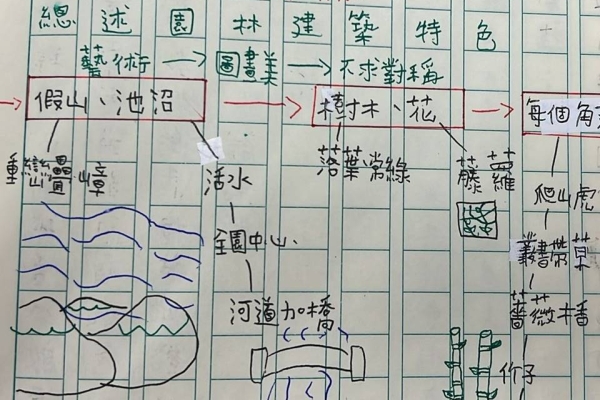 總述園林建築特色
藝術→圖畫美→不求對稱
假山、池沼
樹木、花
每個角
重巒疊嶂
活水
全園中心
河道加橋
落葉常綠
藤蘿
爬山虎
書帶草
薔薇
竹子